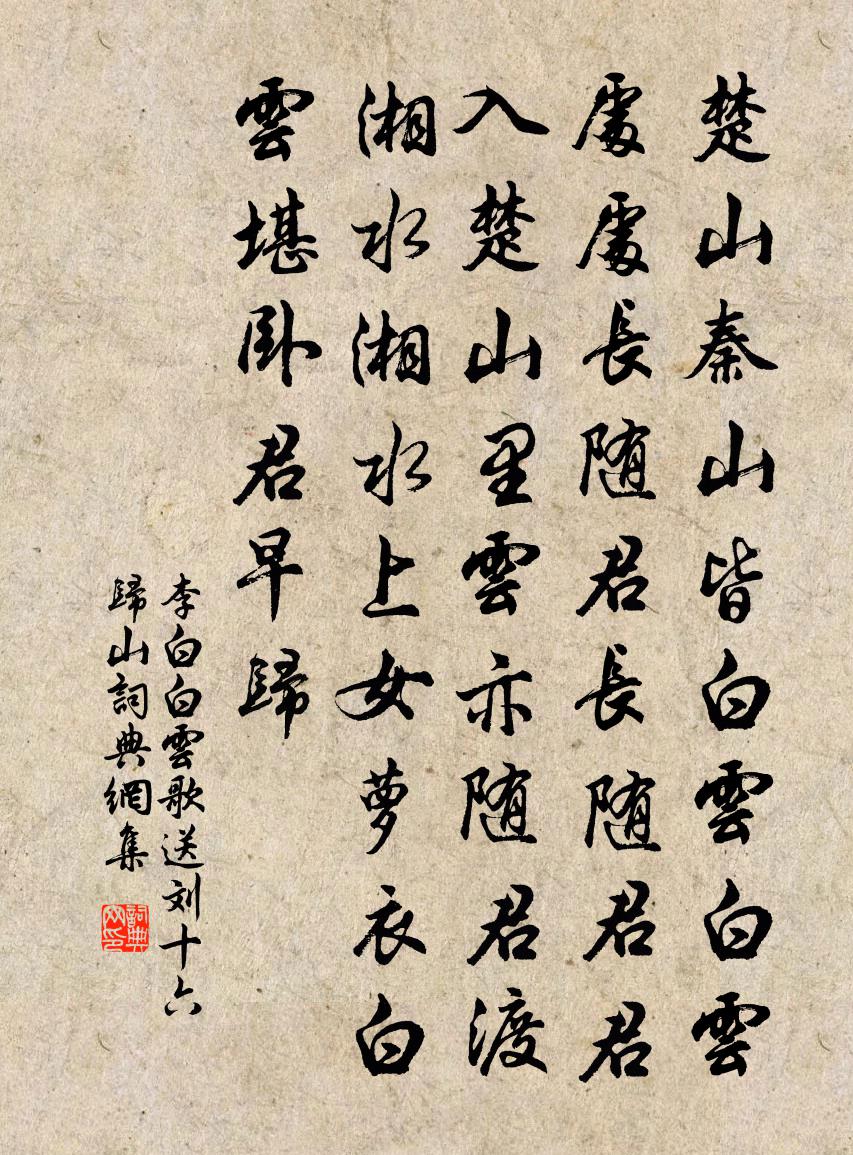 楚山秦山皆白雲白雲
處處長随君長随君君
入楚山里雲亦随君渡
湘水湘水上女萝衣白
雲堪卧君早歸
李白白雲歌送刘十六
歸山詞典網集
詞典
网印